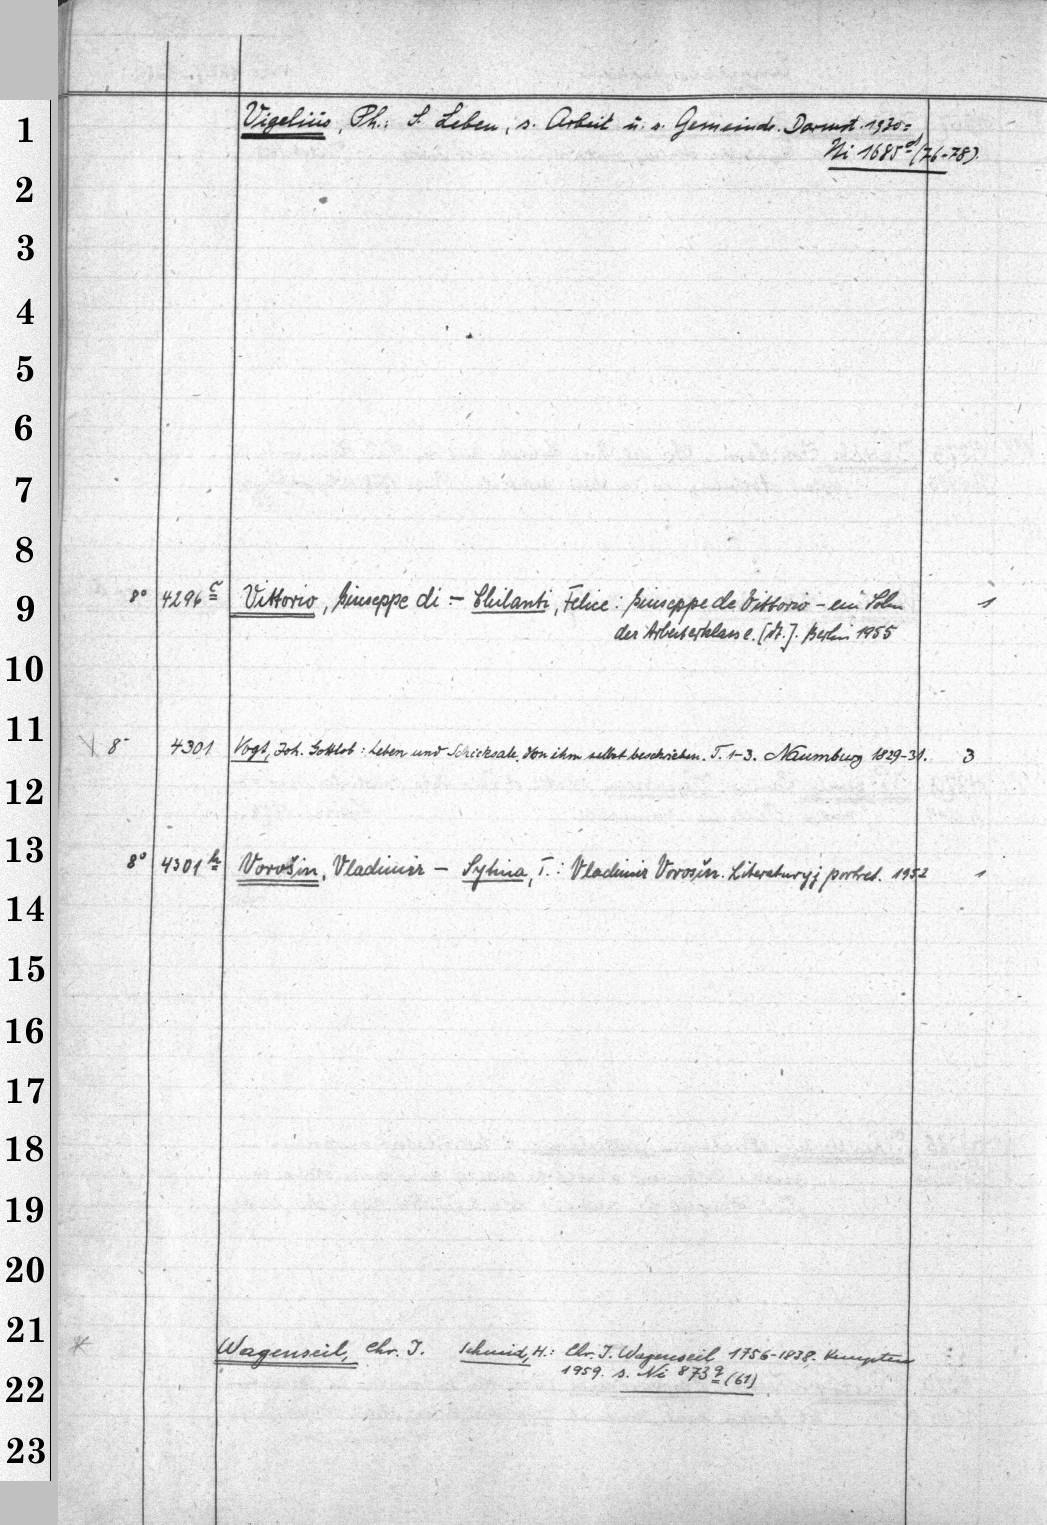 1 Vigelius, Ph.: S. Leben, s. Arbeit u. s. Gemeinde. Darmst. 1930 =
Ni 1685 d (76-78).
2
3
4
5
6
7
8
9 8° 4296 c Vittorio, Giuseppe di :- Chilanti, Felice: Giuseppe de Vittorio - ein Sohn 1
der Arbeiterklasse. [Dt.]. Berlin 1955
10
11 8- 4301 Vogt, Joh. Gottlob: Leben und Schicksale. Von ihm selbst beschrieben. T. 1-3. Naumburg 1829-31. 3
12
13 8° 4301 h Vorošin, Vladimir - Sytina, T.: Vladimir Vorošin. Literaturyj portret. 1952 1
14
15
16
17
18
19
20
21 * Wagenseil, Chr. J. Schmid, H.: Chr. J. Wagenseil 1756-1838. Kempten
22 1959. s. Ni 873 q (61)
23